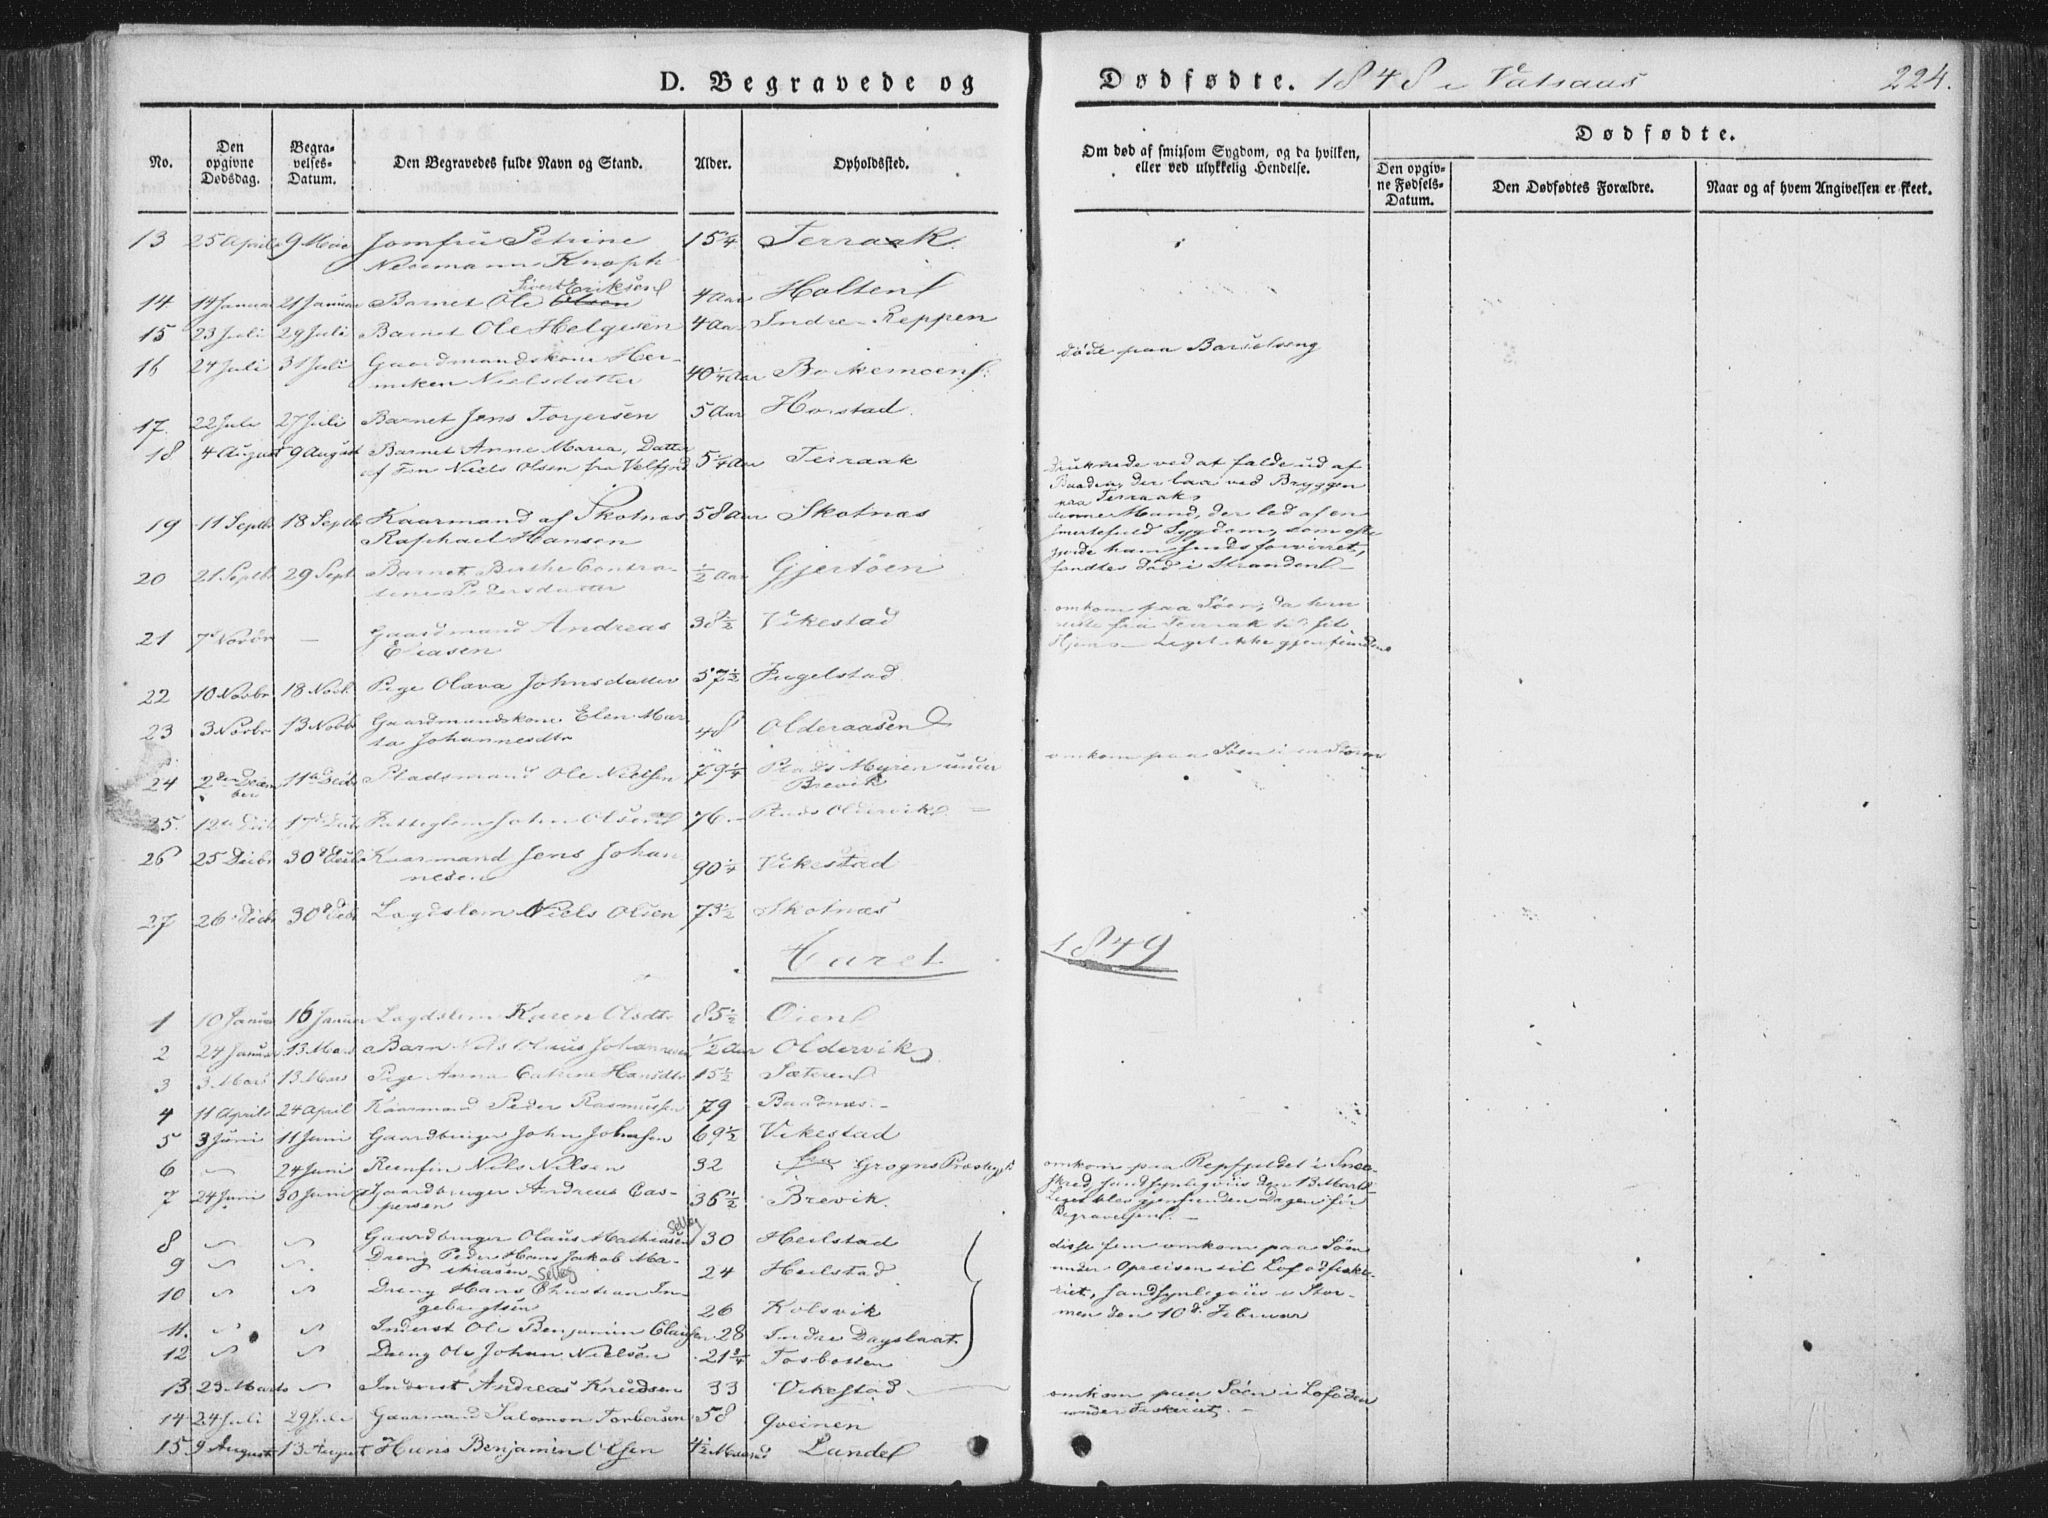 D. Begravede og Dødfødte. 1848 i Vatsaas 224.
No. Den opgivne Dødsdag. Begravelses-Datum. Den Begravedes fulde Navn og Stand. Alder. Opholdssted. Om død af smitsom Sygdom, og da hvilken, eller ved ulykkelig Hendelse. Dødfødte. Den opgivne Fødsels-Datum. Den Dødfødtes Forældre. Naar og af hvem Angivelsen er skeet.
13 25 April 9 Mai Jomfru Petrine 15¼ Terraak.
Knoph
14 14 Januar 21 Januar Barnet Ole Sivert Eriksen 4 Aar Holten
15 23 Juli 29 Juli Barnet Ole Helgesen 4 Aar Indre Reppen
16 24 Juli 31 Juli Gaardmandskone Her-
miken Nielsdatter 40¼ Aar Bokkemoen døde paa Barselseng
17. 22 Juli 27 Juli Barnet Jens Torjersen 5 Aar Horstad.
18 4 August 9 August Barnet Anne Maria, Datter
af Niels Olsen fra Velfjord 5¼ Aar Terraak druknede ved at falde ud af
Baaden, der laa ved Bryggen
paa Terraak
19 11 Septbr 18 Septbr Kaarmand af Skotnæs 58 Aar Skotnæs denne Mand, der led af en
Raphael Hansen smertefuld Sygdom, som ofte
gjorde ham sindsforvirret,
fandtes død i Stranden
20 21 Septbr 29 Sept. Barnet Berthe Contra-
sine Pedersdatter ½ Aar Gjertøen
21 7d Novbr — Gaardmand Andreas 38½ Vikestad omkom paa Søen, da han
Eliasen reiste fra Terraak til sit
Hjem — Liget ikke gjenfunden
22 10 Novbr 18 Novb. Pige Olava Johnsdatter 57½ Fugelstad
23 3 Novbr 13 Novb Gaardmandskone Elen Mar-
ta Johannesdtr 48 Olderaasen
24 2den Decem-
ber 11te Decb Pladsmand Ole Nielsen 79¼ Plads Myren under
Brevik omkom paa Søen i en Storm
25. 12te Decb 17de Decb Fattiglem John Olsen 76. Plads Oldervik
26 25 Decbr 30 Decb Kaarmand Jens Johan-
nesen 90¼ Vikestad
27 26 Decb 30 Decb Lægdslem Niels Olsen 73½ Skotnæs
Aaret 1849
1 10 Januar 16 Januar Lægdslem Karen Olsdtr 85½ Øien
2 24 Januar 13 Mars Barn Nils Olaus Johannesen ½ Aar Oldervik
3 3 Mars 13 Mars Pige Anna Catrine Hansdtr 15½ Sæteren
4 11 April 24 April Kaarmand Peder Rasmussen 79 Baadnes.
5 3 Juni 11 Juni Gaardbruger John Johnsen 69½ Vikestad
6 — 24 Juni Renfin Nils Nilsen 32 fra Grogns Præstegjd omkom paa Repfjeldet i Snee-
skred, sandsynligviis den 13 Marts
Liget blev gjenfunden Dagen før
Begravelsen.
7 24 Juni 30 Juni Gaardbruger Andreas Cas-
persen 36½ Brevik.
8 — — Gaardbruger Olaus Mathiasen Selleg 30 Heilstad disse fem omkom paa Søen
9 — — Dreng Peder Hans Jakob Ma-
thiasen Selleg 24 Heilstad under Opreisen til Lofodfiske-
10 — — Dreng Hans Christian In-
gebrigtsen 26 Kolsvik riet, sandsynligviis i Stor-
men den 10d Februar
11. — — Inderst Ole Benjamin Clausen 28 Indre Dagslaat.
12 — — Dreng Ole Johan Nielsen 21¾ Tosbotten
13 23 Marts — Inderst Andreas Knudsen 33 Vikestad omkom paa Søen i Lofoden
under Fiskeriet.
14 24 Juli 29 Juli Gaarmand Salomon Torbersen 58 Qveinen
15 9 August 13 August Hans Benjamin Olsen 4½ Maaned Lundel